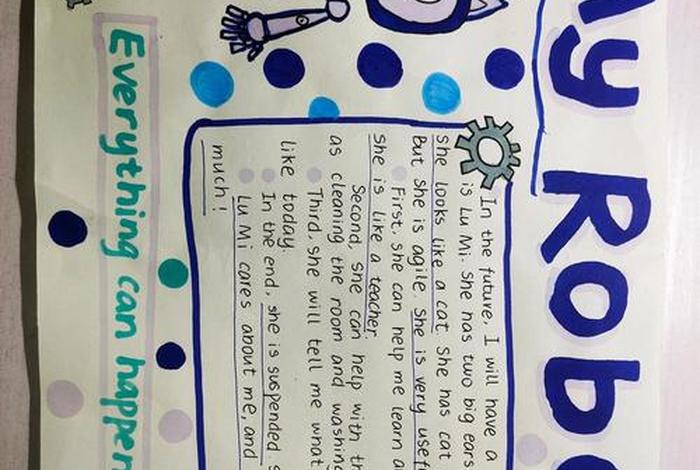 My Rob
In the future, I will have a
is Lu Mi. She has two big ears
she looks like a cat She has cat
But she is agile. She is very usef
First, she can help me learn a
she is like a teacher.
Second, she can help with th
as cleaning the room and washing
Third, she will tell me what
like today.
In the end, she is suspended s
Lu Mi cares about me, and
much!
Everything can happen